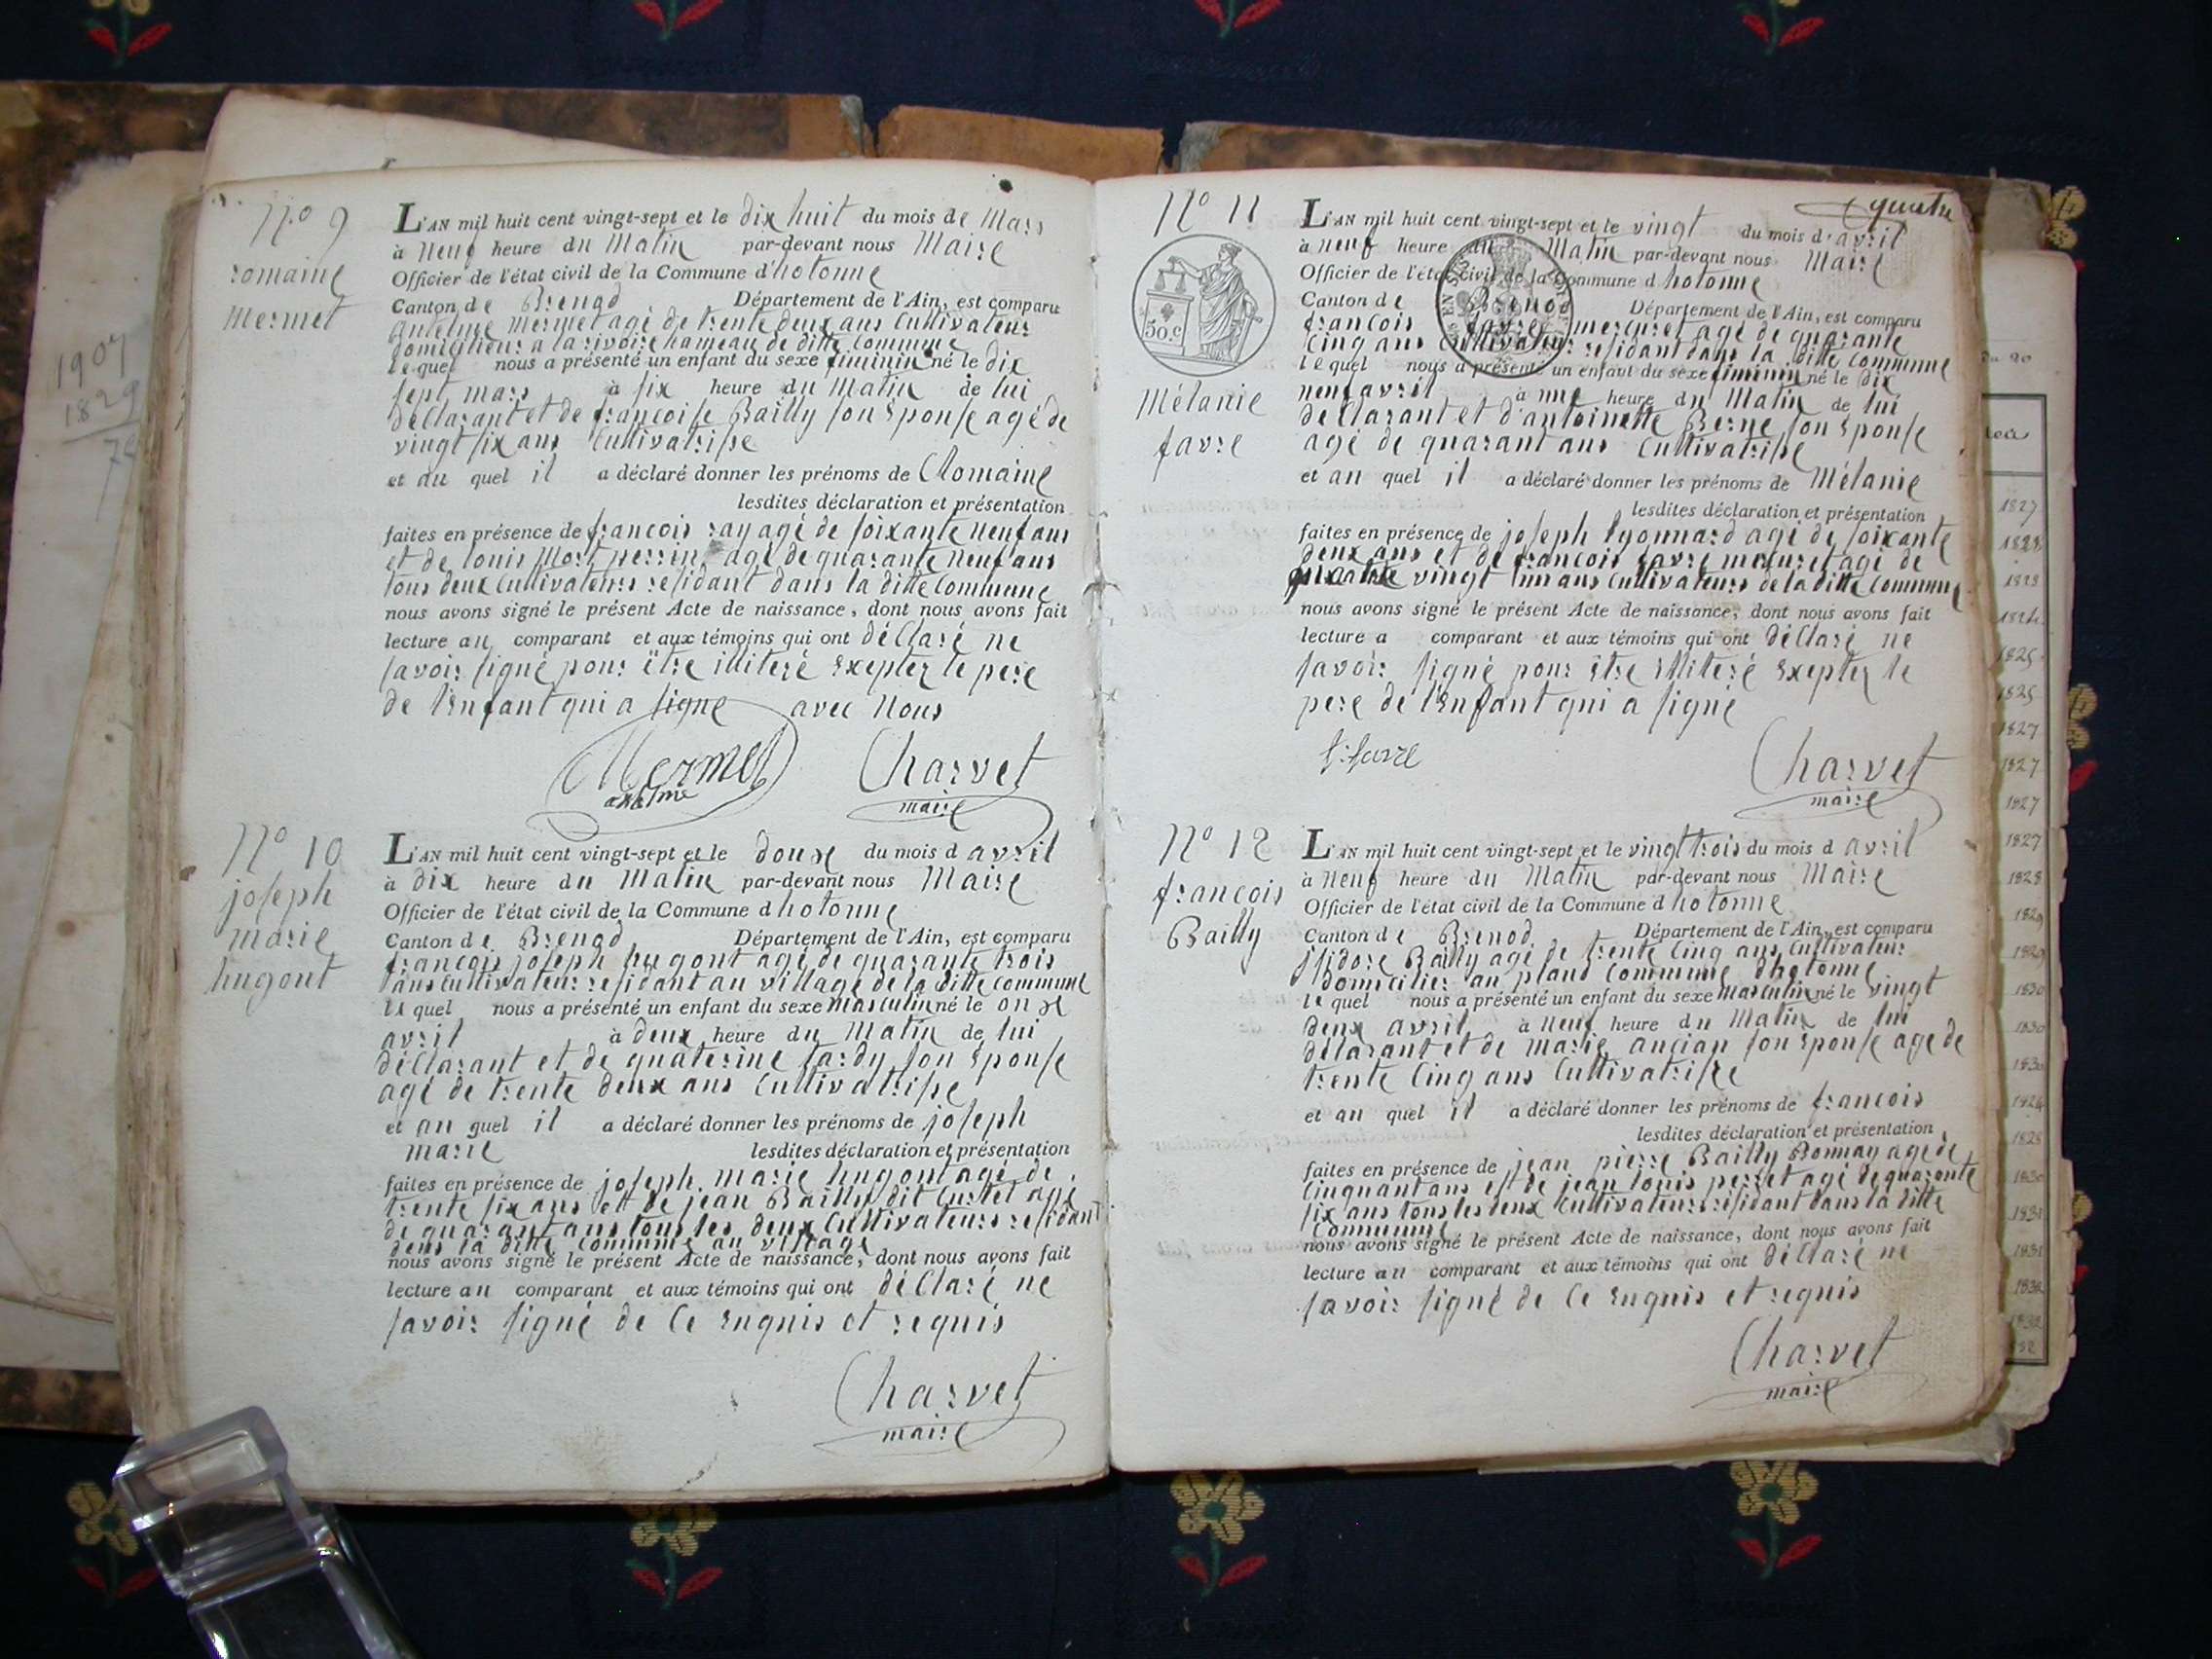 1907
1829
N.o 9
romaine
mermet
L'AN mil huit cent vingt-sept et le dix huit du mois de Mars
à neuf heure du Matin par-devant nous Maire
Officier de l'état civil de la Commune d'hotonne
Canton de Brenod Département de l'Ain, est comparu
antelme mermet agé de trente deux ans Cultivateur
domicilieur a la rivoire hameau de ditte Commune
le quel nous a présenté un enfant du sexe fiminin né le dix
sept mars à six heure du Matin de lui
déclarant et de françoise Bailly son Epouse agé de
vingt six ans Cultivatrise
et au quel il a déclaré donner les prénoms de Romaine
lesdites déclaration et présentation
faites en présence de francois ray agé de soixante neuf ans
et de louis Mort perrin agé de quarante neuf ans
tous deux Cultivateurs residant dans la ditte Commune
nous avons signé le présent Acte de naissance, dont nous avons fait
lecture au comparant et aux témoins qui ont déclaré ne
savoir signé pour être illiteré Exepter le pere
de l'Enfant qui a signe avec Nous
Mermet
antelme
Charvet
maire
N.o 10
joseph
marie
hugont
L'AN mil huit cent vingt-sept et le douse du mois d avril
à dix heure du Matin par-devant nous Maire
Officier de l'état civil de la Commune d hotonne
Canton de Brenod Département de l'Ain, est comparu
francois joseph hugont agé de quarante trois
ans Cultivateur residant au village de la ditte commune
le quel nous a présenté un enfant du sexe masculin né le onse
avril à deux heure du Matin de lui
déclarant et de quaterine tardy son Epouse
agé de trente deux ans Cultivatrise
et au quel il a déclaré donner les prénoms de joseph
marie lesdites déclaration et présentation
faites en présence de joseph marie hugont agé de
trente six ans et de jean Bailly dit Curtet agé
de quarant ans tous les deux Cultivateurs residant
dens la ditte Commune au village
nous avons signé le présent Acte de naissance, dont nous avons fait
lecture au comparant et aux témoins qui ont déclaré ne
savoir signé de Ce Enquis et requis
Charvet
maire
quatre
N.o 11
50 c
Mélanie
favre
L'AN mil huit cent vingt-sept et le vingt du mois d'avril
à neuf heure du Matin par-devant nous Maire
Officier de l'état civil de la Commune d hotonne
Canton de Brenod Département de l'Ain, est comparu
francois favre mercuret agé de quarante
Cinq ans Cultivateur residant dans la ditte Commune
lequel nous a présenté un enfant du sexe fiminin né le dix
neuf avril à une heure du Matin de lui
déclarant et d'antoinette Berne son Epouse
agé de quarant ans Cultivatrise
et au quel il a déclaré donner les prénoms de Mélanie
lesdites déclaration et présentation
faites en présence de joseph lyonnard agé de soixante
deux ans et de francois favre mercuret agé de
quatre vingt un ans Cultivateurs de la ditte Commune
nous avons signé le présent Acte de naissance, dont nous avons fait
lecture a comparant et aux témoins qui ont déClaré ne
savoir signé pour être illiteré Exepter le
pere de l'Enfant qui a signé
f. favre
Charvet
maire
N.o 12
francois
Bailly
L'AN mil huit cent vingt-sept et le vingt trois du mois d avril
à Neuf heure du Matin par-devant nous Maire
Officier de l'état civil de la Commune d hotonne
Canton de Brenod Département de l'Ain, est comparu
isidore Bailly agé de trente Cinq ans Cultivateur
domicilier au plans Commune d'hotonne
le quel nous a présenté un enfant du sexe masculin né le vingt
deux avril à Neuf heure du Matin de lui
délarant et de marie ancian son Epouse agé de
trente Cinq ans Cultivatrise
et au quel il a déclaré donner les prénoms de francois
lesdites déclaration et présentation
faites en présence de jean pierre Bailly Bonnay agé de
Cinquant ans et de jean louis perret agé de quarante
six ans tous les deux Cultivateurs residant dans la ditte
Commune
nous avons signé le présent Acte de naissance, dont nous avons fait
lecture au comparant et aux témoins qui ont déClaré ne
savoir signé de Ce Enquis et requis
Charvet
maire
1827
1828
1828
1824
1825
1825
1827
1827
1827
1827
1828
1829
1829
1830
1830
1830
1824
1828
1830
1831
1831
1832
1832